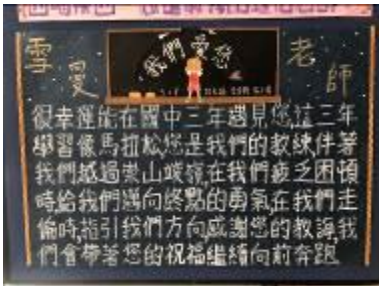 我們愛您
雪雯
老師
很幸運能在國中三年遇見您,這三年
學習像馬拉松,您是我們的教練,伴著
我們越過崇山峻嶺,在我們疲乏困頓
時給我們邁向終點的勇氣,在我們走
偏時,指引我們方向感謝您的教誨,我
們會帶著您的祝福繼續向前奔跑